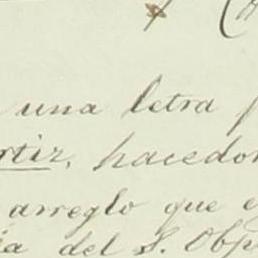 una letra
rtiz, hacedor
arreglo que e
ia del S. Obp